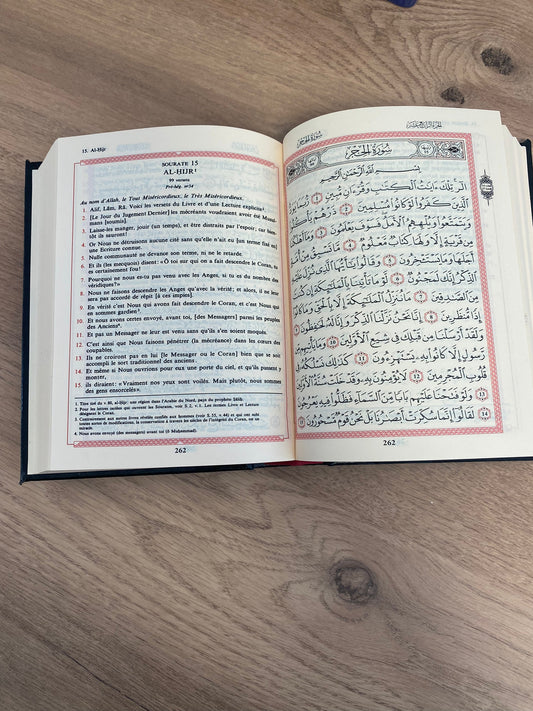 15. Al-Hijr
SOURATE 15
AL-HIJR¹
99 versets
Pré-hég. n°54
Au nom d'Allah, le Tout Miséricordieux, le Très Miséricordieux.
1. Alif, Lâm, Râ. Voici les versets du Livre et d'une Lecture explicite².
2. [Le Jour du Jugement Dernier] les mécréants voudraient avoir été Musul-
mans [soumis].
3. Laisse-les manger, jouir (un temps), et être distraits par l'espoir; car bien-
tôt ils sauront!
4. Or Nous ne détruisons aucune cité sans qu'elle n'ait eu [un terme fixé en]
une Ecriture connue.
5. Nulle communauté ne devance son terme, ni ne le retarde.
6. Et ils (les mecquois) disent: «Ô toi sur qui on a fait descendre le Coran, tu
es certainement fou!
7. Pourquoi ne nous es-tu pas venu avec les Anges, si tu es du nombre des
véridiques?»
8. Nous ne faisons descendre les Anges qu'avec la vérité; et alors, il ne leur
sera pas accordé de répit [à ces impies].
9. En vérité c'est Nous qui avons fait descendre le Coran, et c'est Nous qui
en sommes gardien³.
10. Et nous avons certes envoyé, avant toi, [des Messagers] parmi les peuples
des Anciens⁴.
11. Et pas un Messager ne leur est venu sans qu'ils s'en soient moqués.
12. C'est ainsi que Nous faisons pénétrer (la mécréance) dans les cœurs des
coupables.
13. Ils ne croiront pas en lui [le Messager ou le Coran] bien que se soit
accompli le sort traditionnel des anciens.
14. Et même si Nous ouvrions pour eux une porte du ciel, et qu'ils pussent y
monter,
15. ils diraient: «Vraiment nos yeux sont voilés. Mais plutôt, nous sommes
des gens ensorcelés».
1. Titre tiré du v. 80. al-Hijr: une région dans l'Arabie du Nord, pays du prophète Sâlih.
2. Pour les lettres isolées qui ouvrent les Sourates, voir S.2, v.1. Les termes Livre et Lecture
désignent le Coran.
3. Contrairement aux autres livres révélés confiés aux hommes (voir 5, v. 44) et qui ont subi
toutes sortes de modifications, la conservation à travers les siècles de l'intégrité du Coran, est un
miracle.
4. Nous avons envoyé (des messagers) avant toi (ô Muhammad).
262
سُورَةُ الحِجْر
الجزء الرابع عشر
سُورَةُ الحِجْر
بِسْمِ اللَّهِ الرَّحْمَٰنِ الرَّحِيمِ
الٓر تِلْكَ ءَايَٰتُ ٱلْكِتَٰبِ وَقُرْءَانٍ مُّبِينٍ ١ رُّبَمَا يَوَدُّ
ٱلَّذِينَ كَفَرُوا۟ لَوْ كَانُوا۟ مُسْلِمِينَ ٢ ذَرْهُمْ يَأْكُلُوا۟
وَيَتَمَتَّعُوا۟ وَيُلْهِهِمُ ٱلْأَمَلُ فَسَوْفَ يَعْلَمُونَ ٣ وَمَآ أَهْلَكْنَا
مِن قَرْيَةٍ إِلَّا وَلَهَا كِتَابٌ مَّعْلُومٌ ٤ مَّا تَسْبِقُ مِنْ أُمَّةٍ أَجَلَهَا
وَمَا يَسْتَـْٔخِرُونَ ٥ وَقَالُوا۟ يَٰٓأَيُّهَا ٱلَّذِى نُزِّلَ عَلَيْهِ
ٱلذِّكْرُ إِنَّكَ لَمَجْنُونٌ ٦ لَّوْ مَا تَأْتِينَا بِٱلْمَلَٰٓئِكَةِ إِن كُنتَ
مِنَ ٱلصَّٰدِقِينَ ٧ مَا نُنَزِّلُ ٱلْمَلَٰٓئِكَةَ إِلَّا بِٱلْحَقِّ وَمَا كَانُوٓا۟
إِذًا مُّنظَرِينَ ٨ إِنَّا نَحْنُ نَزَّلْنَا ٱلذِّكْرَ وَإِنَّا لَهُۥ لَحَٰفِظُونَ ٩
وَلَقَدْ أَرْسَلْنَا مِن قَبْلِكَ فِى شِيَعِ ٱلْأَوَّلِينَ ١٠ وَمَا يَأْتِيهِم مِّن
رَّسُولٍ إِلَّا كَانُوا۟ بِهِۦ يَسْتَهْزِءُونَ ١١ كَذَٰلِكَ نَسْلُكُهُۥ فِى
قُلُوبِ ٱلْمُجْرِمِينَ ١٢ لَا يُؤْمِنُونَ بِهِۦ وَقَدْ خَلَتْ سُنَّةُ ٱلْأَوَّلِينَ ١٣
وَلَوْ فَتَحْنَا عَلَيْهِم بَابًا مِّنَ ٱلسَّمَآءِ فَظَلُّوا۟ فِيهِ يَعْرُجُونَ ١٤
لَقَالُوٓا۟ إِنَّمَا سُكِّرَتْ أَبْصَٰرُنَا بَلْ نَحْنُ قَوْمٌ مَّسْحُورُونَ ١٥
262